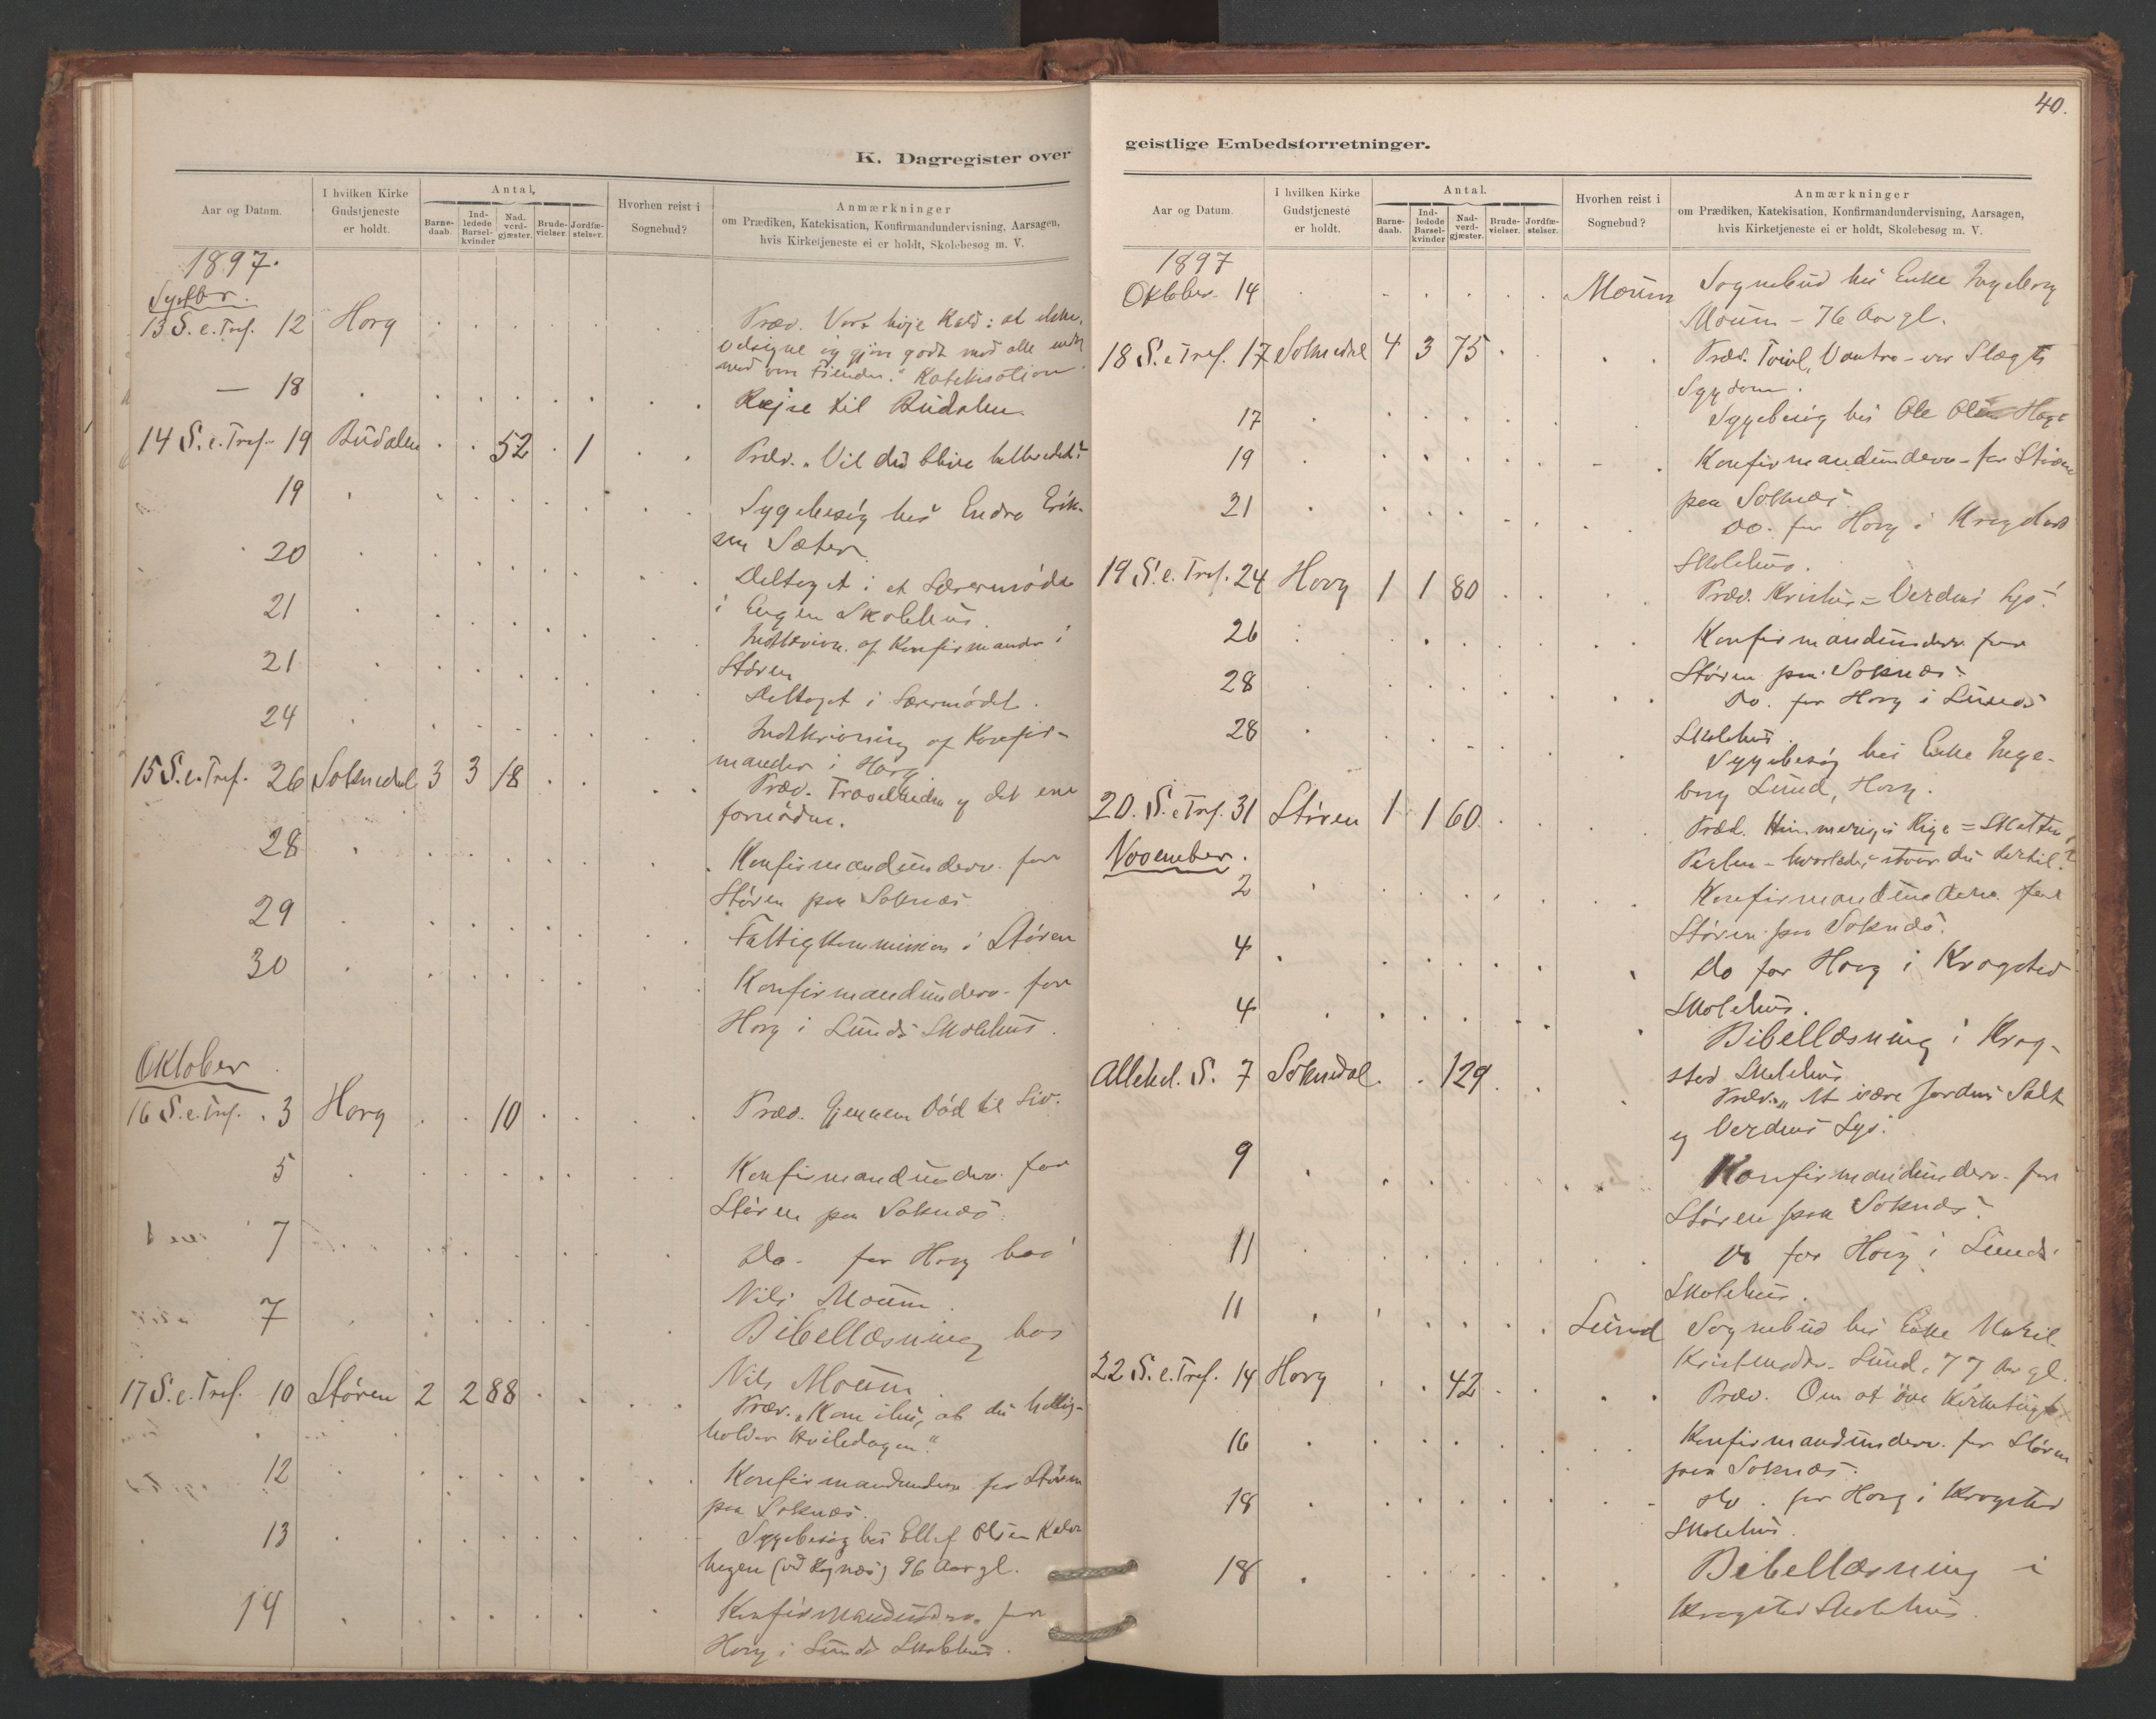 K. Dagregister over
Aar og Datum.
I hvilken Kirke Gudstjeneste er holdt.
Antal.
Barne-daab.
Ind-ledede Barsel-kvinder
Nad. verd-gjæster.
Brude-vielser.
Jordfæ-stelser.
Hvorhen reist i Sognebud?
Anmærkninger
om Prædiken, Katekisation, Konfirmandundervisning, Aarsagen,
hvis Kirketjeneste ei er holdt, Skolebesøg m. V.
1897.
13 S. e. Tref. 12 Horg Præd. Vort høje Kald: at elske,
velsigne og gjøre godt mod alle endog
mod vore Fiender." Katekisation.
— 18 Rejse til Budalen
14 S. e. Tref. 19 Budalen 52 1 Præd. "Vil du blive helbredet?
19 Sygebesøg hos Endre Erik-
sen Sæter
20 Deltaget i et Lærermøde
i Engen Skolehus.
21 Indskrivn. af Konfirmander i
Støren
21 Deltaget i Lærermødet.
24 Indskrivning af Konfir-
mander i Horg
15 S. e. Tref. 26 Soknedal 3 3 18 Præd. Travelheden og det ene
fornødne.
28 Konfirmandunderv. for
Støren paa Soknæs
29 Fattigkommission i Støren
30 Konfirmandunderv. for
Horg i Lunds Skolehus.
Oktober
16 S. e. Tref. 3 Horg 10 Præd. Gjennem Død til Liv.
5 Konfirmandunderv. for
Støren paa Soknæs.
7 Do. for Horg hos
Nils Moum.
7 Bibellæsning hos
Nils Moum
17 S. e. Tref. 10 Støren 2 2 88 Præd. "Kom ihu, at du hellig-
holder Hviledagen."
12 Konfirmandunderv. for Støren
paa Soknæs.
13 Sygebesøg hos Ellef Olsen
96 Aar gl.
14 Konfirmandunderv. for
Horg i Lunds Skolehus.
40.
geistlige Embedsforretninger.
Aar og Datum.
I hvilken Kirke Gudstjeneste er holdt.
Antal.
Barne-daab.
Ind-ledede Barsel-kvinder
Nad-verd-gjæster.
Brude-vielser.
Jordfæ-stelser.
Hvorhen reist i Sognebud?
Anmærkninger
om Prædiken, Katekisation, Konfirmandundervisning, Aarsagen,
hvis Kirketjeneste ei er holdt, Skolebesøg m. V.
1897
Oktober 14 Moum Sognebud hos Enke Ingeborg
Moum – 76 Aar gl.
18 S. e Tref. 17 Soknedal 4 3 75 Præd. Tvivl, Vantro – vor Slægts
Sygdom.
17 Sygebesøg hos Ole
19 Konfirmandunderv. for Støren
paa Soknæs
21 Do. for Horg i Krogstad
Skolehus.
19 S. e. Tref. 24 Horg 1 1 80 Præd. Kristus = Verdens Lys!
26 Konfirmandunderv. for
Støren paa Soknæs
28 Do. for Horg i Lunds
Skolehus.
28 Sygebesøg hos Enke Inge-
borg Lund, Horg.
20. S. e Tref. 31 Støren 1 1 60 Præd. Himmeriges Rige = Skatten,
Perlen – hvorledes staar du dertil?
November.
2 Konfirmandunderv. for
Støren paa Soknæs.
4 Do for Horg i Krogsted
Skolehus.
4 Bibellæsning i Krog-
sted Skolehus
Allehel. S. 7 Soknedal 129 Præd. "At være Jordens Salt
og Verdens Lys.
9 Konfirmandunderv. for
Støren paa Soknæs.
11 Do for Horg i Lunds
Skolehus.
11 Lund Sognebud hos Enke
Lund, 77 Aar gl.
22 S. e. Tref. 14 Horg 42 Præd. Om at øve Kirketugt
16 Konfirmandunderv. for Støren
paa Soknæs.
18 Do. for Horg i Krogsted
Skolehus.
18 Bibellæsning i
Krogsted Skolehus.